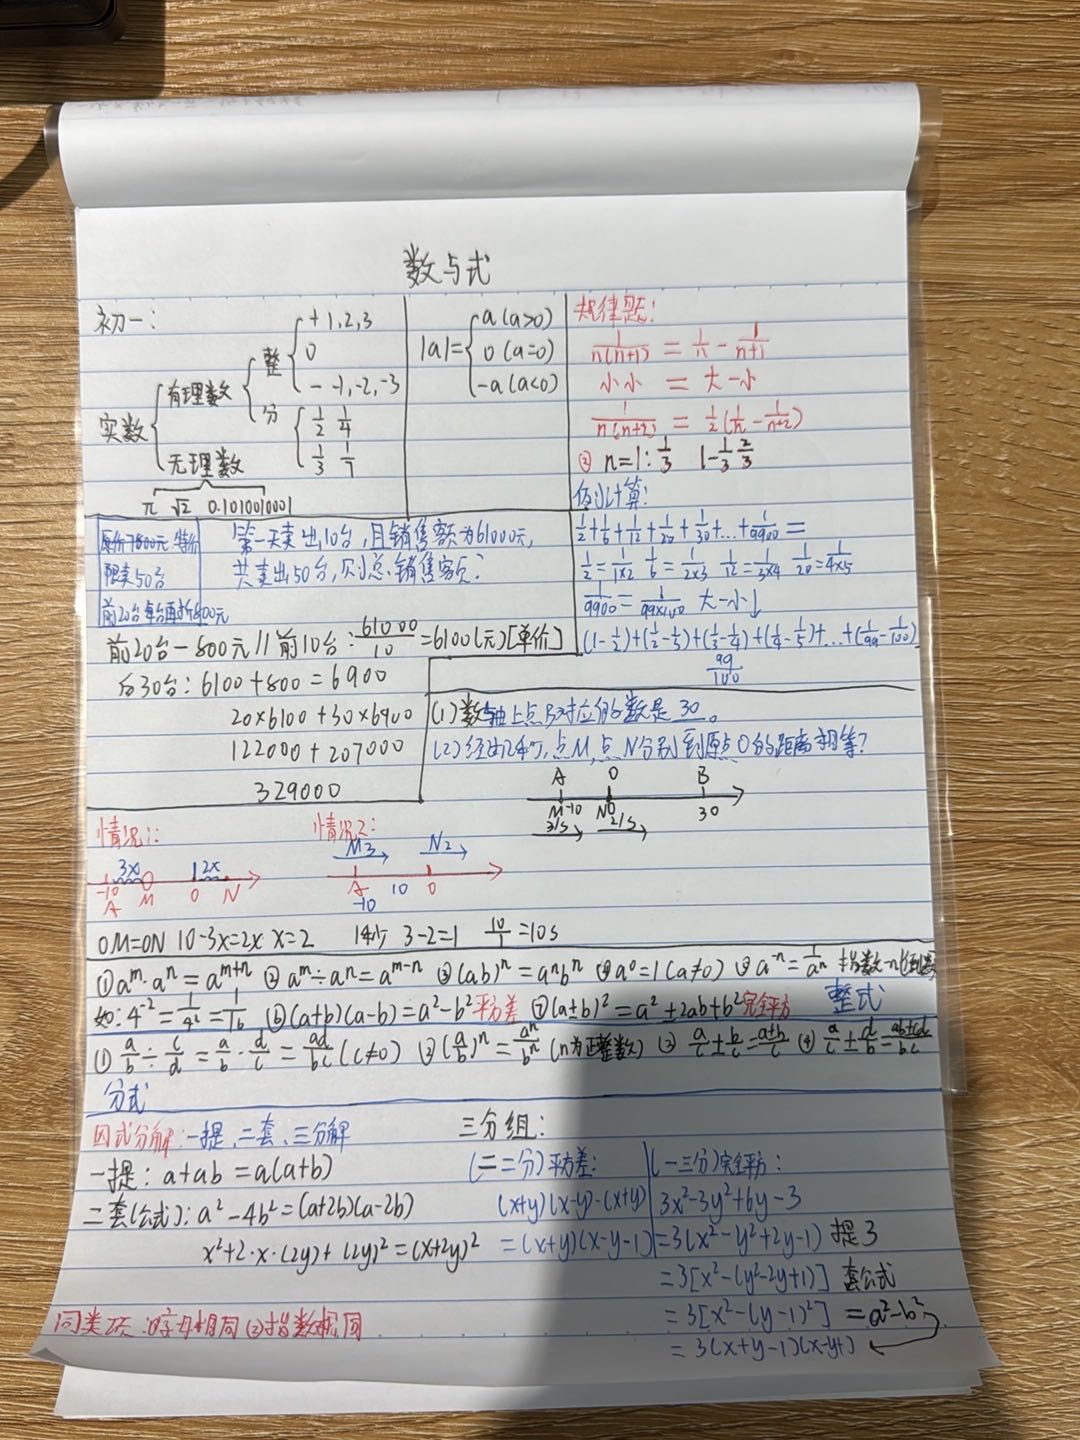 数与式
初一:
实数
有理数
整
+ 1,2,3
0
- -1,-2,-3
分
1/2 1/4
1/3 1/7
无理数
π √2 0.1010010001
|a|=
a (a>0)
0 (a=0)
-a (a<0)
规律题:
1/n(n+1) = 1/n - 1/n+1
小小 = 大-小
1/n(n+2) = 1/2(1/n - 1/n+2)
② n=1: 1/3 1-1/3 2/3
例计算:
1/2+1/6+1/12+1/20+1/30+...+1/9900=
1/2=1/1×2 1/6=1/2×3 1/12=1/3×4 1/20=1/4×5
1/9900=1/99×100 大-小↓
(1-1/2)+(1/2-1/3)+(1/3-1/4)+(1/4-1/5)+...+(1/99-1/100)
99/100
原价7800元 特价
限卖50台
前20台每台再折800元
第一天卖出10台,且销售额为61000元,
共卖出50台,则总销售额?
前20台-800元 // 前10台: 61000/10=6100(元)[单价]
后30台: 6100+800=6900
20×6100+30×6900
122000+207000
329000
(1)数轴上点B对应的数是30。
(2)经过几秒,点M,点N分别到原点O的距离相等?
A O B
M -10 N 0 30
3/s 2/s
情况1:
3x 2x
-10 M O N
A
情况2:
M3 N2
A 10 0
-10
OM=ON 10-3x=2x x=2 1秒 3-2=1 10/1=10s
①a^m·a^n=a^m+n ②a^m÷a^n=a^m-n ③(ab)^n=a^nb^n ④a^0=1(a≠0) ⑤a^-n=1/a^n 指数-n(倒数)
如: 4^-2=1/4^2=1/16 ⑥(a+b)(a-b)=a²-b²平方差 ⑦(a±b)²=a²±2ab+b²完全平方 整式
① a/b÷c/d=a/b·d/c=ad/bc(c≠0) ②(a/b)^n=a^n/b^n(n为正整数) ③ a/c±b/c=a±b/c ④ a/c±d/b=ab±cd/bc
分式
因式分解:一提、二套、三分解
一提: a+ab=a(a+b)
二套(公式): a²-4b²=(a+2b)(a-2b)
x²+2·x·(2y)+(2y)²=(x+2y)²
三分组:
(二二分)平方差:
(x+y)(x-y)-(x+y)
=(x+y)(x-y-1)
(一三分)完全平方:
3x²-3y²+6y-3
=3(x²-y²+2y-1) 提3
=3[x²-(y²-2y+1)] 套公式
=3[x²-(y-1)²] =a²-b²
=3(x+y-1)(x-y+1)
同类项:①字母相同 ②指数相同